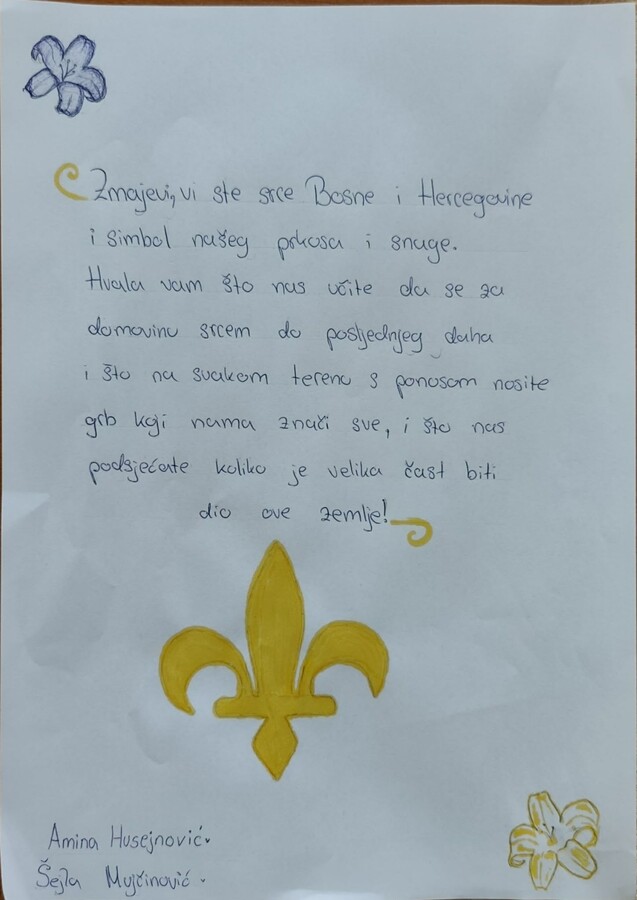 Zmajevi, vi ste srce Bosne i Hercegovine
i simbol našeg prkosa i snage.
Hvala vam što nas učite da se za
domovinu srcem do posljednjeg daha
i što na svakom terenu s ponosom nosite
grb koji nama znači sve, i što nas
podsjećate koliko je velika čast biti
dio ove zemlje!
Amina Husejnović.
Šejla Mujčinović.